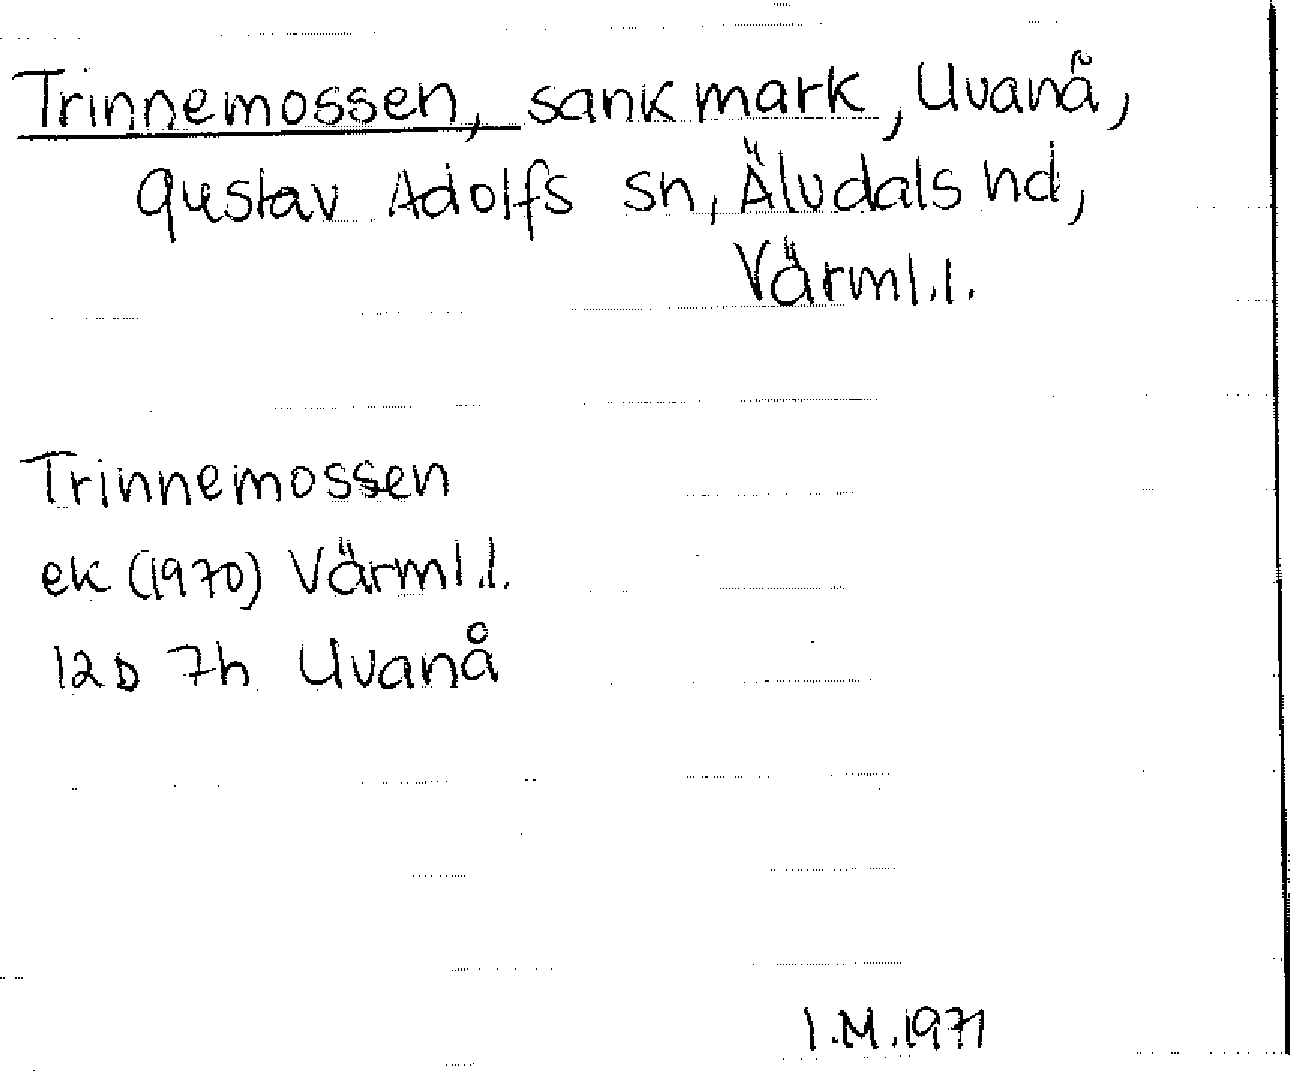 Trinnemossen, sank mark, Uvanå,
Gustav Adolfs sn, Älvdals hd,
Värml.l.
Trinnemossen
ek (1970) Värml.l.
12D 7h Uvanå
I.M.1971